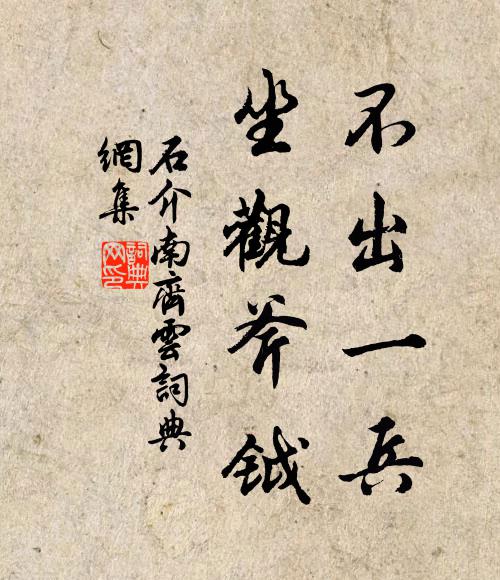 不出一兵
坐觀斧鉞
石介南齊雲詞典
網集
詞典
网印